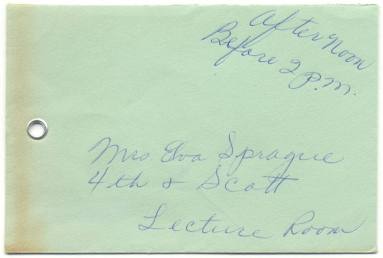 After Noon
Before 2
P.M.
Mrs Eva Sprague
4th & Scott
Lecture Room